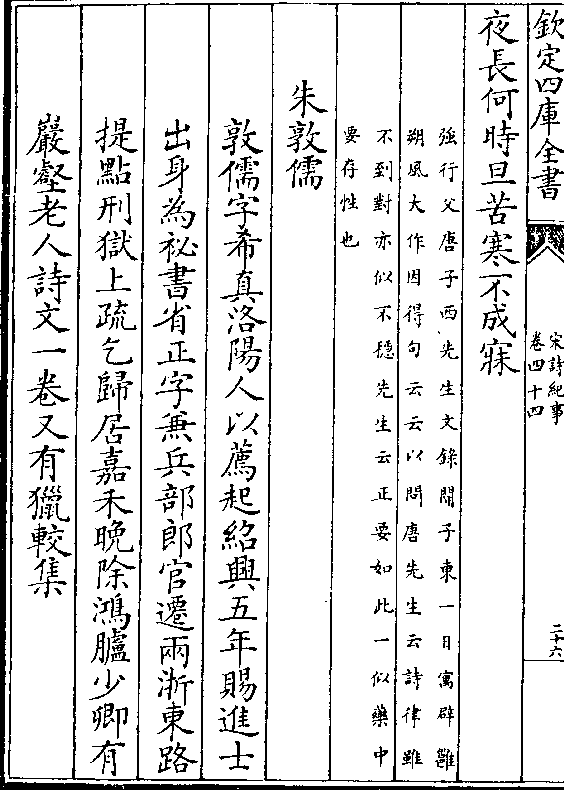 欽定四庫全書
宋詩紀事
卷四十四
二十六
夜長何時旦苦寒不成寐
強行父唐子西先生文錄關子東一日寓辟雝
朔風大作因得句云云以問唐先生云詩律雖
不到對亦似不穏先生云正要如此一似藥中
要存性也
朱敦儒
敦儒字希真洛陽人以薦起紹興五年賜進士
出身為祕書省正字兼兵部郎官遷兩浙東路
提點刑獄上疏乞歸居嘉禾晚除鴻臚少卿有
巖壑老人詩文一卷又有獵較集